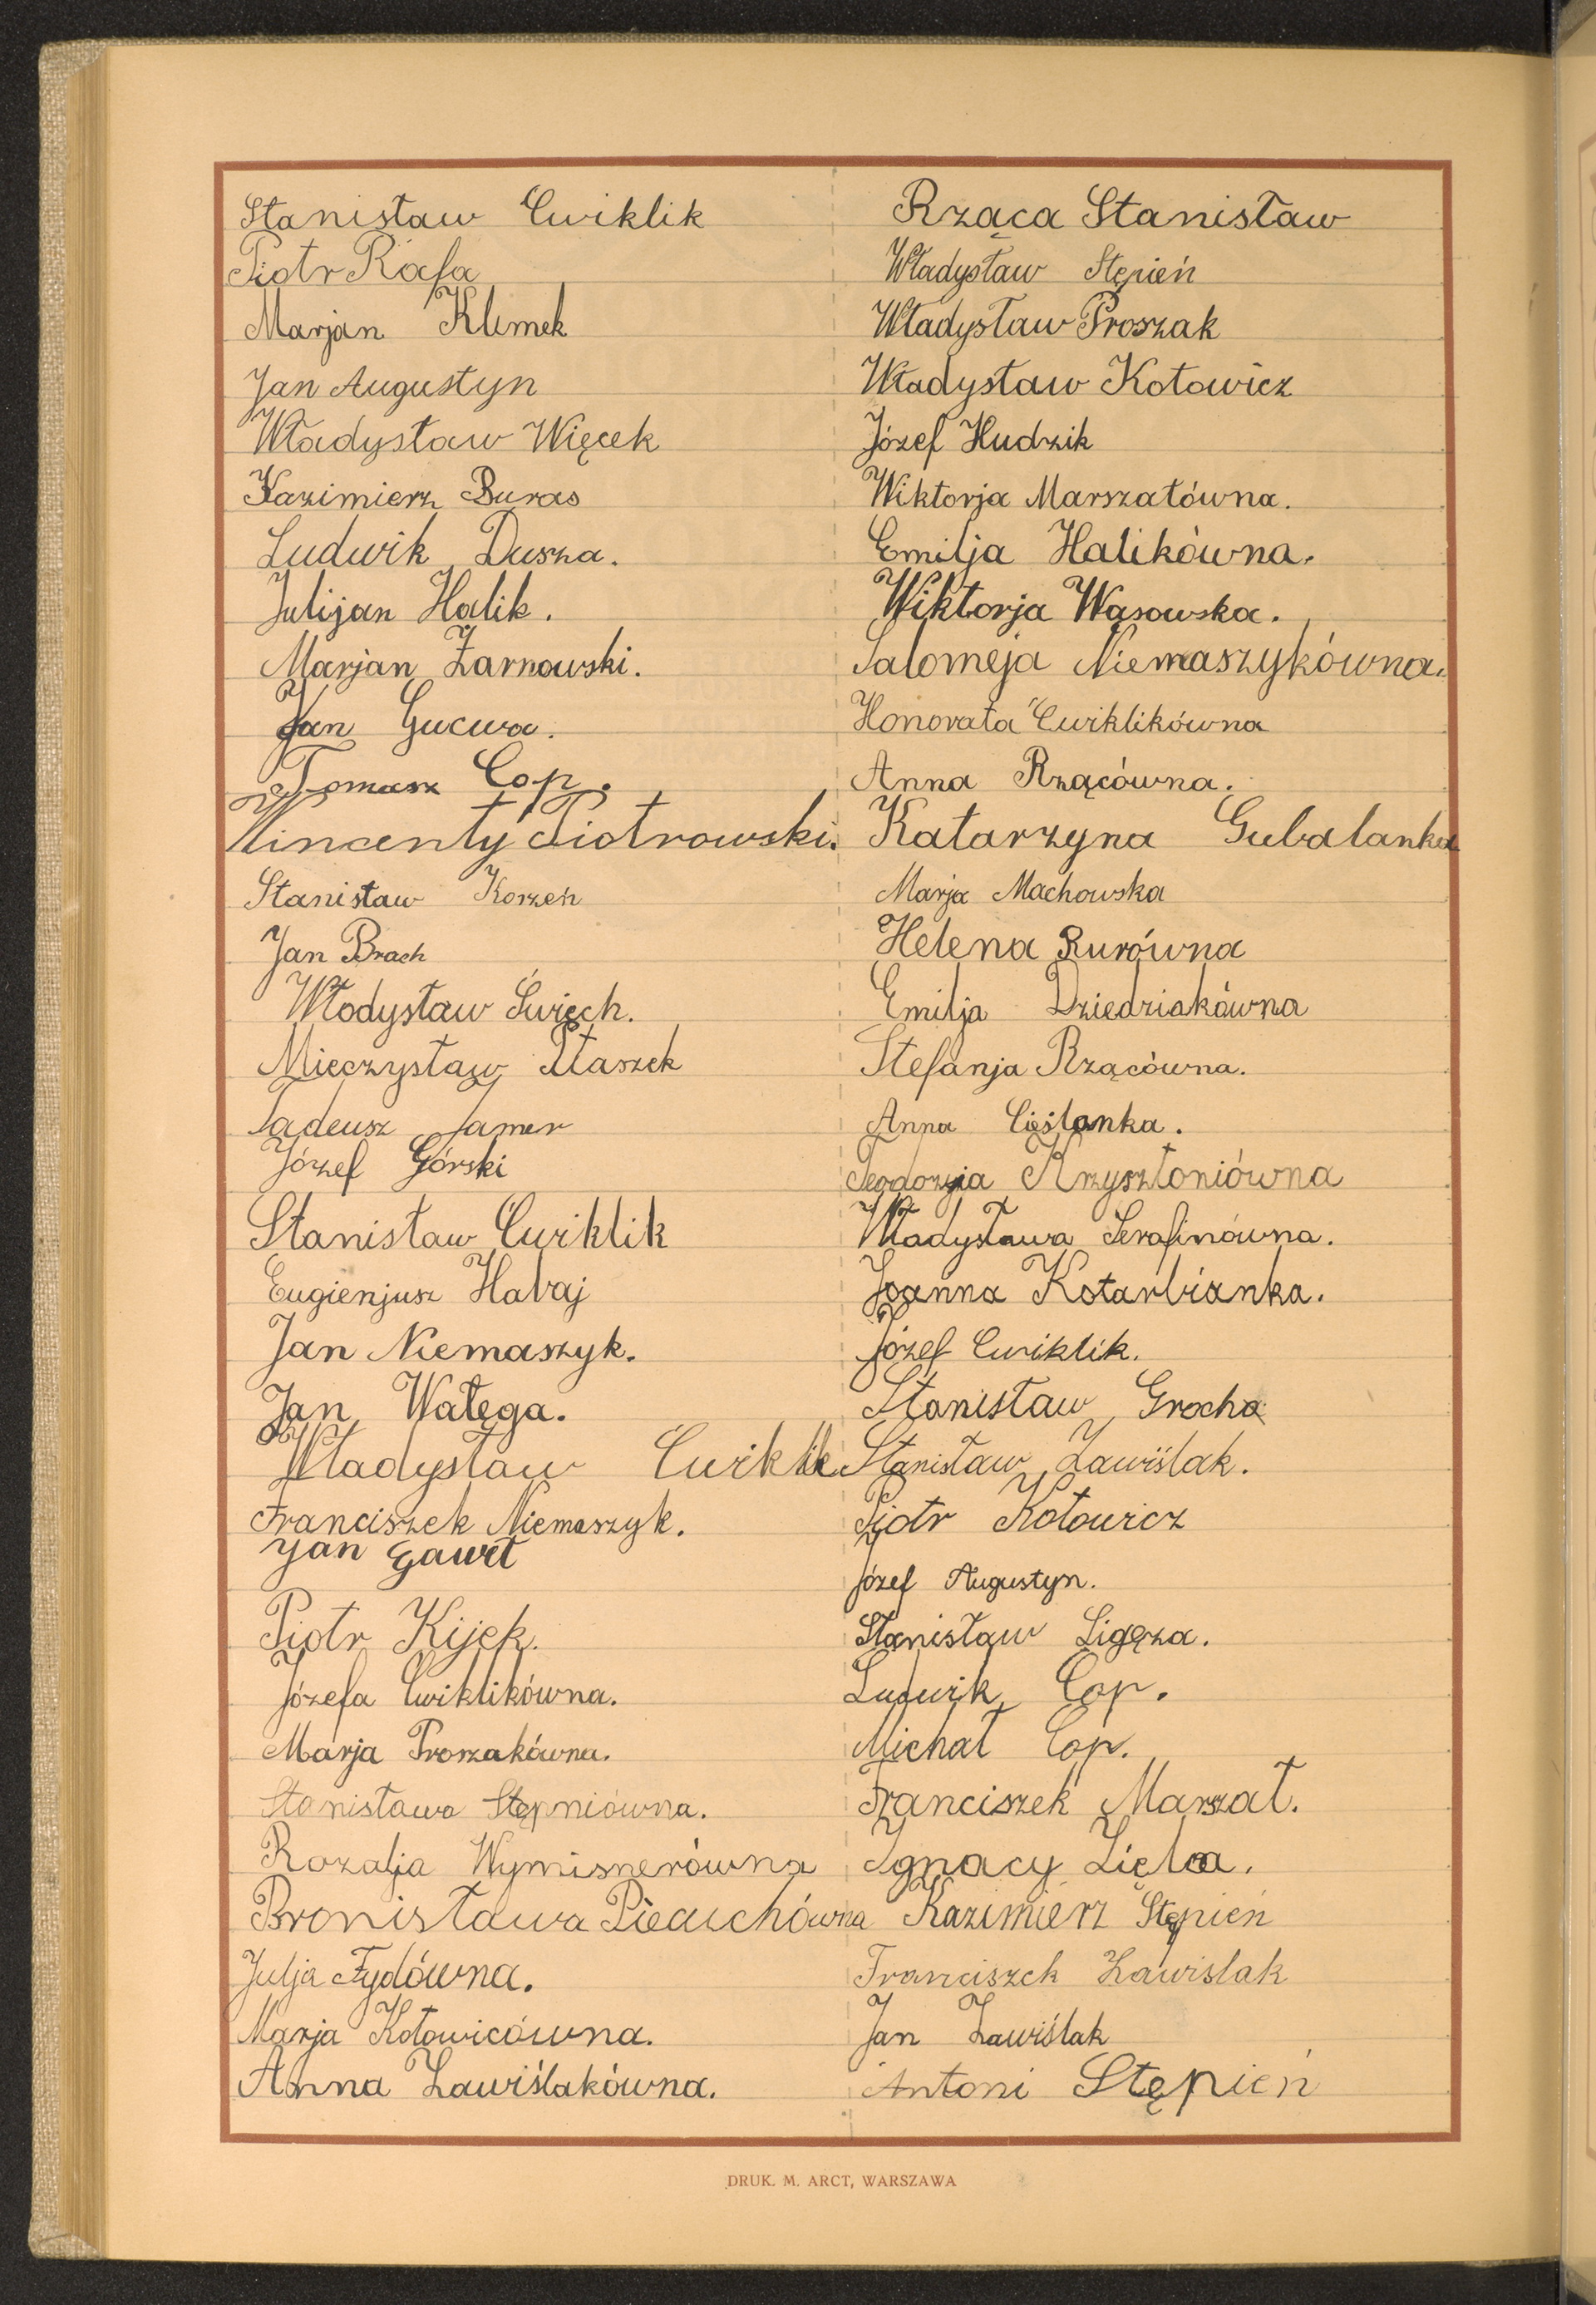 Stanisław Ćwiklik
Piotr Rafa
Marjan Klimek
Jan Augustyn
Władysław Więcek
Kazimierz Buras
Ludwik Dusza.
Julijan Halik.
Marjan Żarnowski.
Jan Gucwa.
Tomasz Cop.
Wincenty Piotrowski.
Stanisław Korzeń
Jan Brach
Włodysław Święch.
Mieczysław Ptaszek
Tadeusz Jamer
Józef Górski
Stanisław Ćwiklik
Eugienjusz Habaj
Jan Niemaszyk.
Jan Wałęga.
Władysław Ćwiklik
Franciszek Niemaszyk.
Jan Gaweł
Piotr Kijek.
Józefa Ćwiklikówna.
Marja Proszakówna.
Stanisława Stępniówna.
Rozalja Wymisnerówna
Bronisława Piechówna
Julja Fydówna.
Marja Kotowicówna.
Anna Zawiślakówna.
Rząca Stanisław
Władysław Stępień
Władysław Proszak
Władysław Kotowicz
Józef Hudzik
Wiktorja Marszałówna.
Emilja Halikówna.
Wiktorja Wąsowska.
Salomeja Niemaszykówna.
Honorata Ćwiklikówna
Anna Rzącówna.
Katarzyna Gubalanka
Marja Machowska
Helena Rurówna
Emilja Dziedziakówna
Stefanja Rzącówna.
Anna Cieślanka.
Teodozja Krzysztoniówna
Władysława Serafinówna.
Joanna Kotarbianka.
Józef Ćwiklik.
Stanisław Grocha
Stanisław Zawiślak.
Piotr Kotowicz
Józef Augustyn.
Stanisław Ligęza.
Ludwik Cop.
Michał Cop.
Franciszek Marszał.
Ignacy Zięba.
Kazimierz Stępień
Franciszek Zawislak
Jan Zawiślak
Antoni Stępień
DRUK. M. ARCT, WARSZAWA